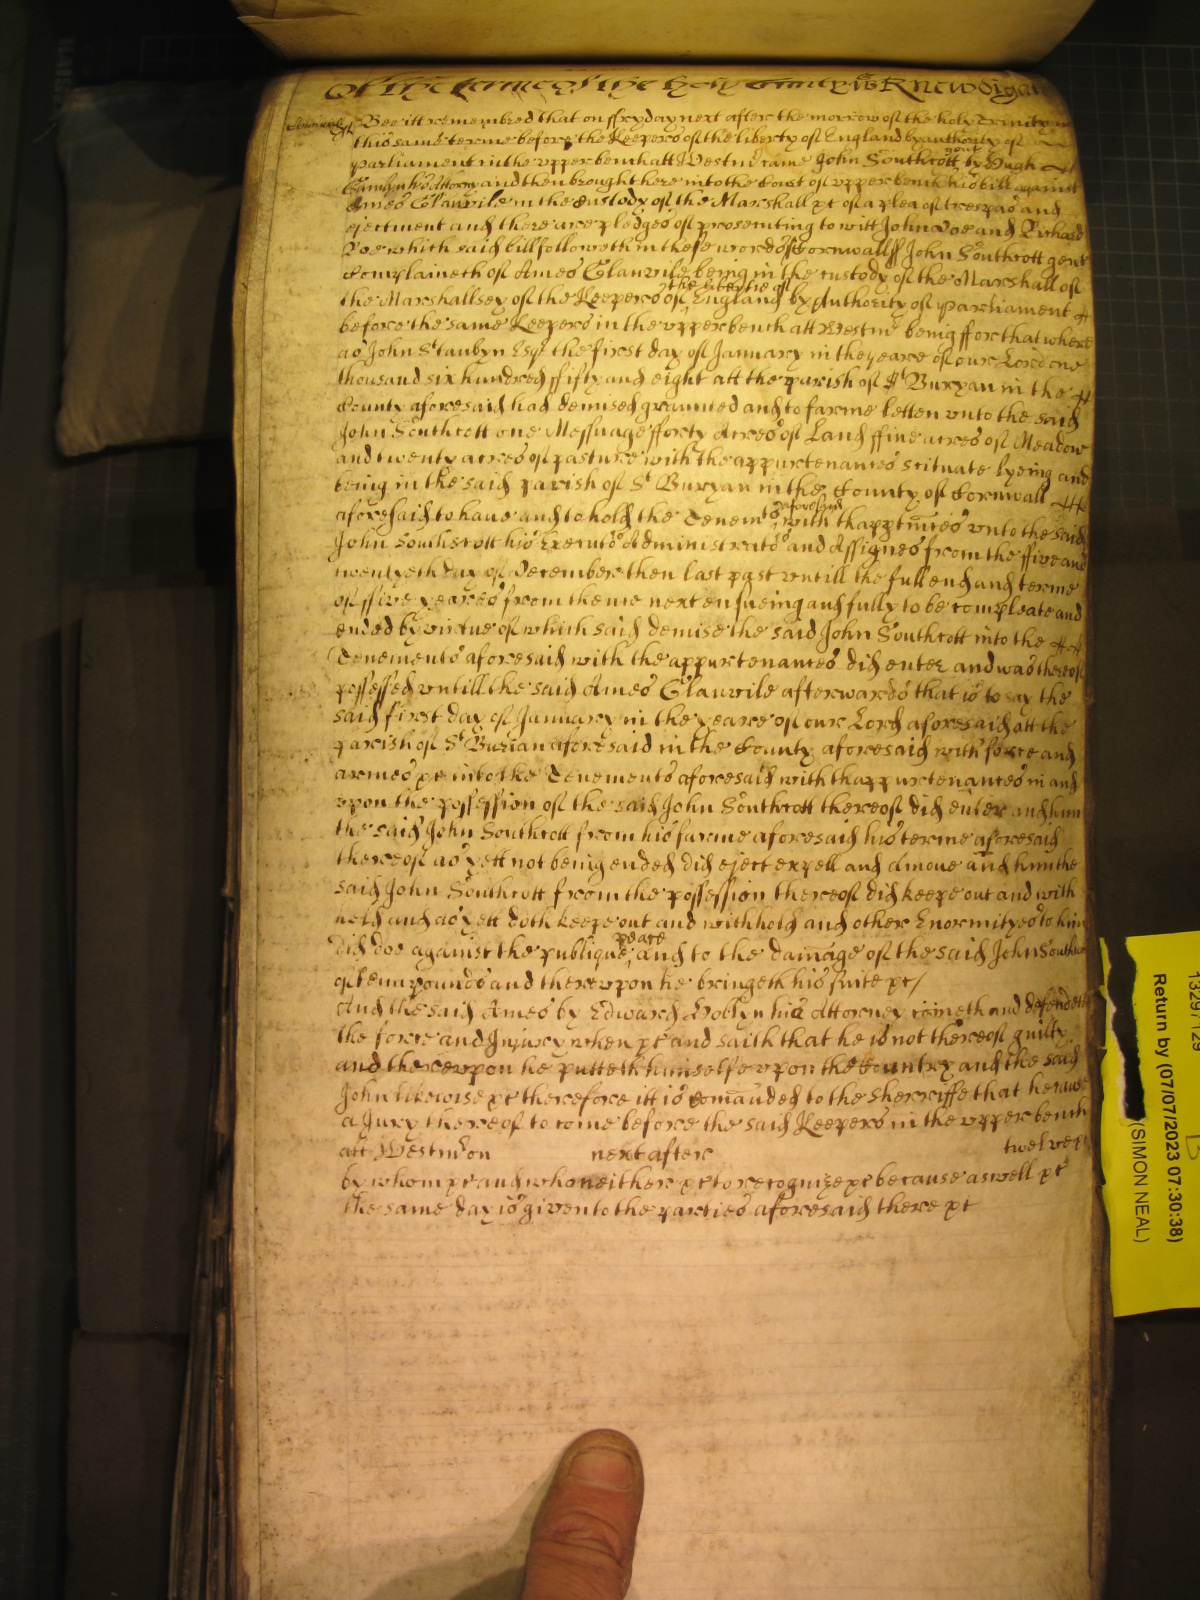 Of the terme of the holy Trinity Wit Newdigate
Cornwall ss Bee itt remembred that on ffryday next after the morrow of the holy Trinity in
this same terme before the Keepers of the liberty of England by authority of
Parliament in the vpper bench att Westmr came John Southcott gent by Hugh
his Attorny and then brought here into the Court of vpper bench his bill against
Ames Glanvile in the custody of the Marshall &c of a plea of trespas and
ejectment and there are pledges of prosecuting to witt John Doe and Richard
Roe which said bill followeth in these words ss Cornwall ss John Southcott gent
Complaineth of Ames Glanvile being in the custody of the Marshall of
the Marshallsey of the Keepers of the libertie of England by Authority of Parliament
before the same Keepers in the vpper bench att Westmr being ffor that where
as John St aubyn Esqr the first day of January in the yeare of our Lord one
thousand six hundred ffifty and eight att the parish of St Buryan in the
County aforesaid had demised graunted and to farme letten vnto the said
John Southcott one Messuage fforty Acres of Land ffive acres of Meadow
and twenty acres of pasture with the appurtenances scituate lyeing and
being in the said parish of St Buryan in the County of Cornwall
aforesaid to haue and to hold the Tenemts aforesaid with thapptnces vnto the said
John Southcott his Executors Administrators and Assignes from the ffive and
twentyeth day of December then last past vntill the full end and terme
of ffive yeares from thence next ensueing and fully to be compleate and
ended by virtue of which said demise the said John Southcott into the
Tenements aforesaid with the appurtenances did enter and was thereof
possessed vntill the said Ames Glanvile afterwards that is to say the
said first day of January in the yeare of our Lord aforesaid att the
parish of St Burian aforesaid in the County aforesaid with force and
armes &c into the Tenements aforesaid with thappurtenances in and
vpon the possession of the said John Southcott thereof did enter and him
the said John Southcott from his farme aforesaid his terme aforesaid
thereof as yett not being ended did eject expell and amove and him the
said John Southcott from the possession thereof did keepe out and with
hold and as yett doth keepe out and withhold and other Enormityes to him
did doe against the publique peace and to the damage of the said John Southcott
of tenn pounds and therevpon he bringeth his suite &c
And the said Ames by Edward his Attorney cometh and defendeth
the force and Injury when &c and saith that he is not thereof guilty
and therevpon he putteth himselfe vpon the Country and the said
John likewise &c therefore itt is comanded to the Sherriffe that he cause
a Jury thereof to come before the said Keepers in the vpper bench
att Westmr on next after twelve &c
by whom &c and who neither &c to recognize &c because aswell &c
the same day is given to the parties aforesaid there &c
Return by (07/07/2023 07:30:38)
(SIMON NEAL)